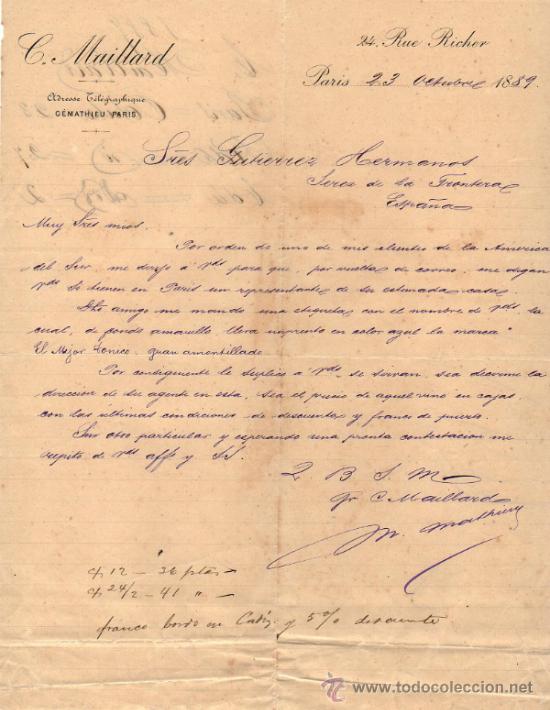 C. Maillard
24, Rue Richer
Paris 23 Octubre 1889.
Adresse Télégraphique
CÉMATHIEU PARIS
Sres Gutierrez Hermanos
Jerez de la Frontera
España
Muy Sres mios.
Por orden de uno de mis clientes de la America
del Sur, me dirijo á Vds para que, por vuelta de correo, me digan
Vds si tienen en Paris un representante de su estimada casa.
Dho amigo me mando una etiqueta con el nombre de Vds la
cual, de fondo amarillo lleva imprento en color azul la marca "
El Mejor tonico. Juan amontillado
Por consiguiente le suplico á Vds se sirvan, sea decirme la
direccion de su agente en esta, sea el precio de aquel vino en cajas,
con las ultimas condiciones de descuentos y franco de puerto.
Sin otro particular y esperando una pronta contestacion me
repito de Vds affo y SS.
Q B S M
pr C. Maillard
M. Mathieu
12 — 36 ptas —
24/2 — 41 " —
franco bordo en Cadiz y 5% descuento
www.todocoleccion.net